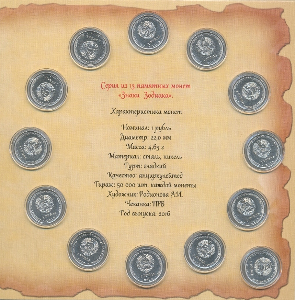 Серия из 13 памятных монет
«Знаки Зодиака».
Характеристика монет.
Номинал: 1 рубль
Диаметр: 22.0 мм
Масса: 4,65 г
Материал: сталь, никель
Гурт: гладкий
Качество: анциркулейтед
Тираж: 50 000 шт. каждой монеты
Художник: Родионова А.И.
Чеканка: ПРБ
Год выпуска: 2016